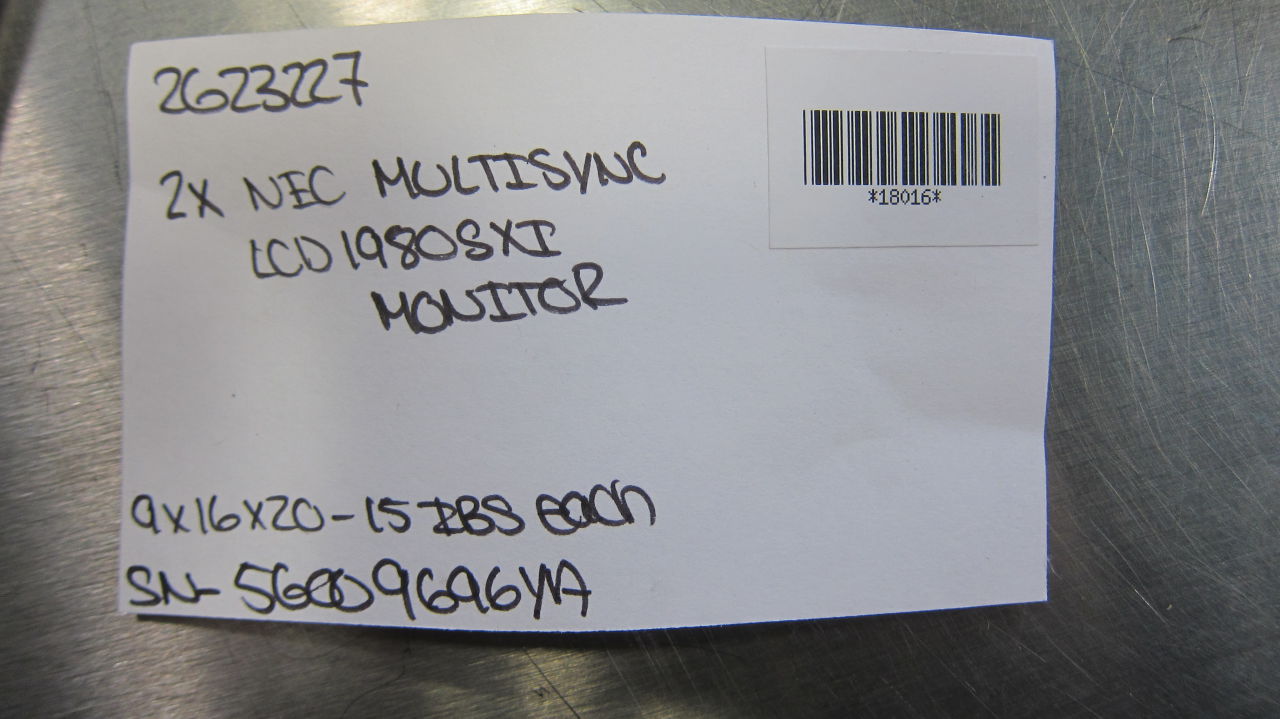 2623227
*18016*
2X NEC MULTISYNC
LCD1980SXI
MONITOR
9X16X20-15 LBS each
SN-